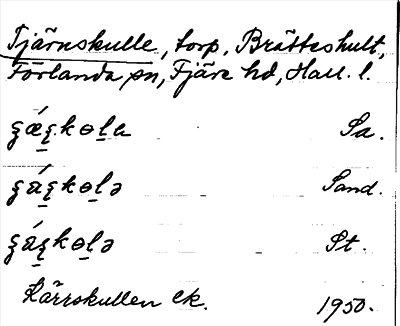 Tjärnskulle, torp, Brätteshult,
Förlanda sn, Fjäre hd, Hall. l.
Sa.
Sand.
St.
Kärrskullen ek. 1950.